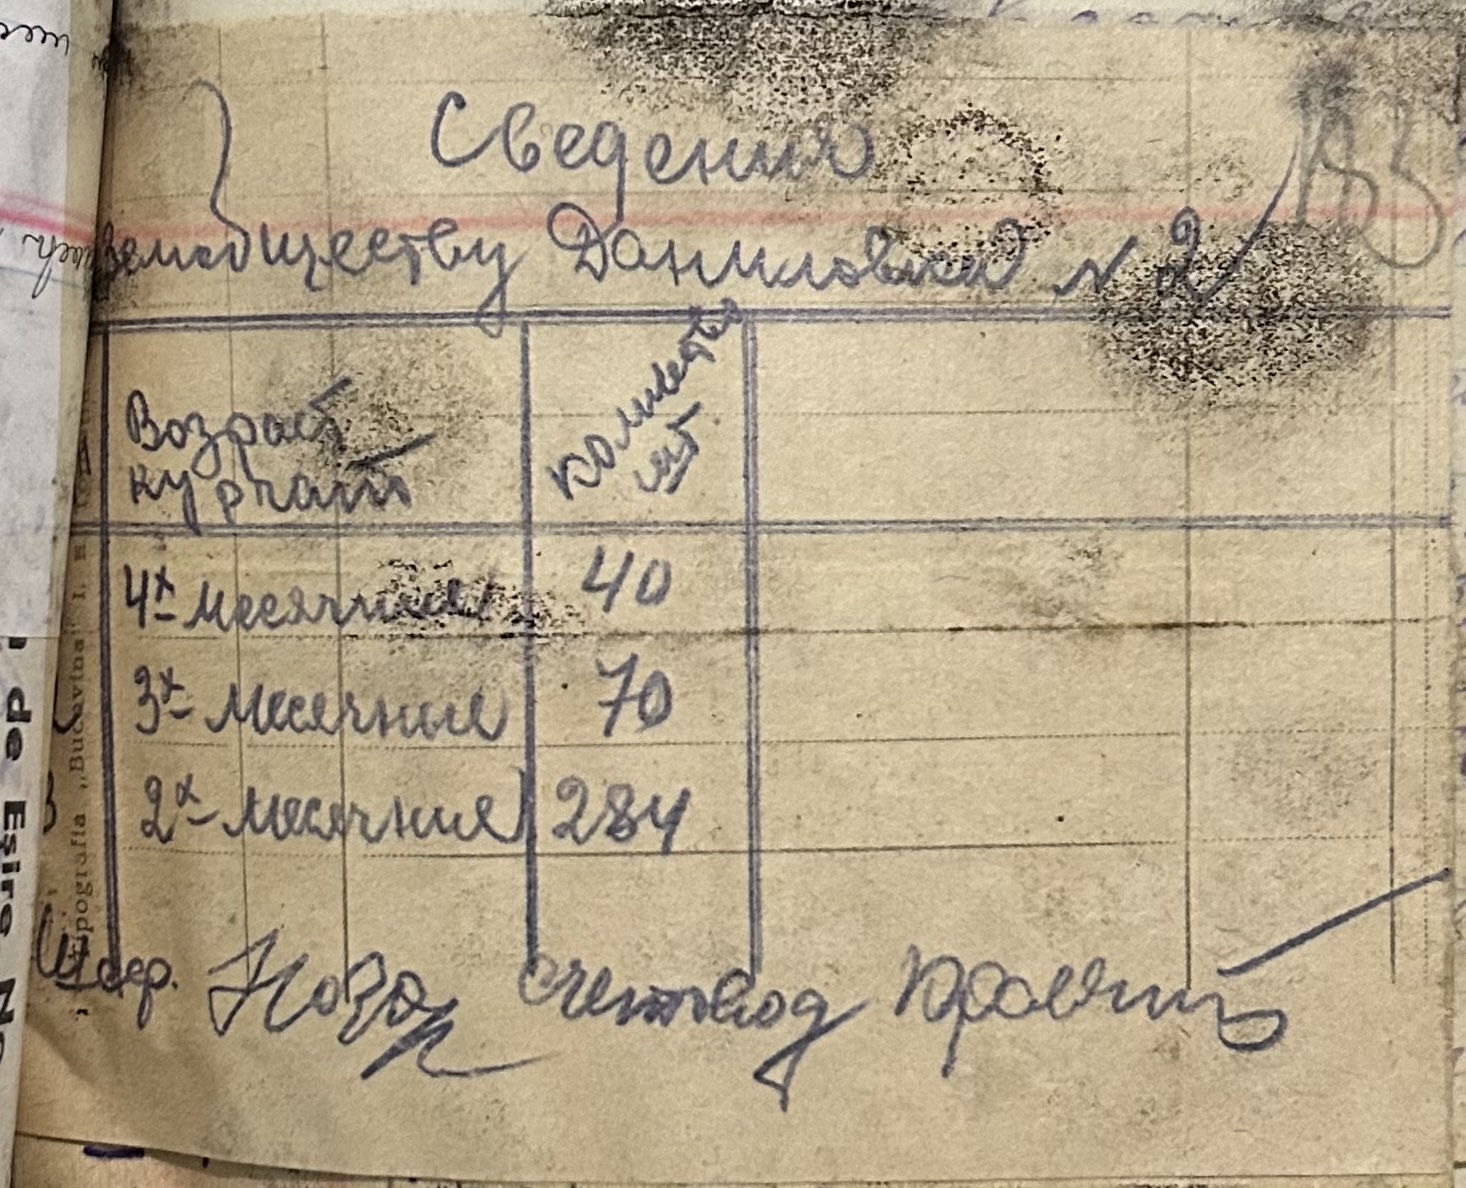 Сведения
земобществу Даниловка N 2
Возраст
курчат
Количество
шт
4х месячные 40
3х месячные 70
2х месячные 284
счетовод
Tipografia „Bucovina" I. E
de Esire